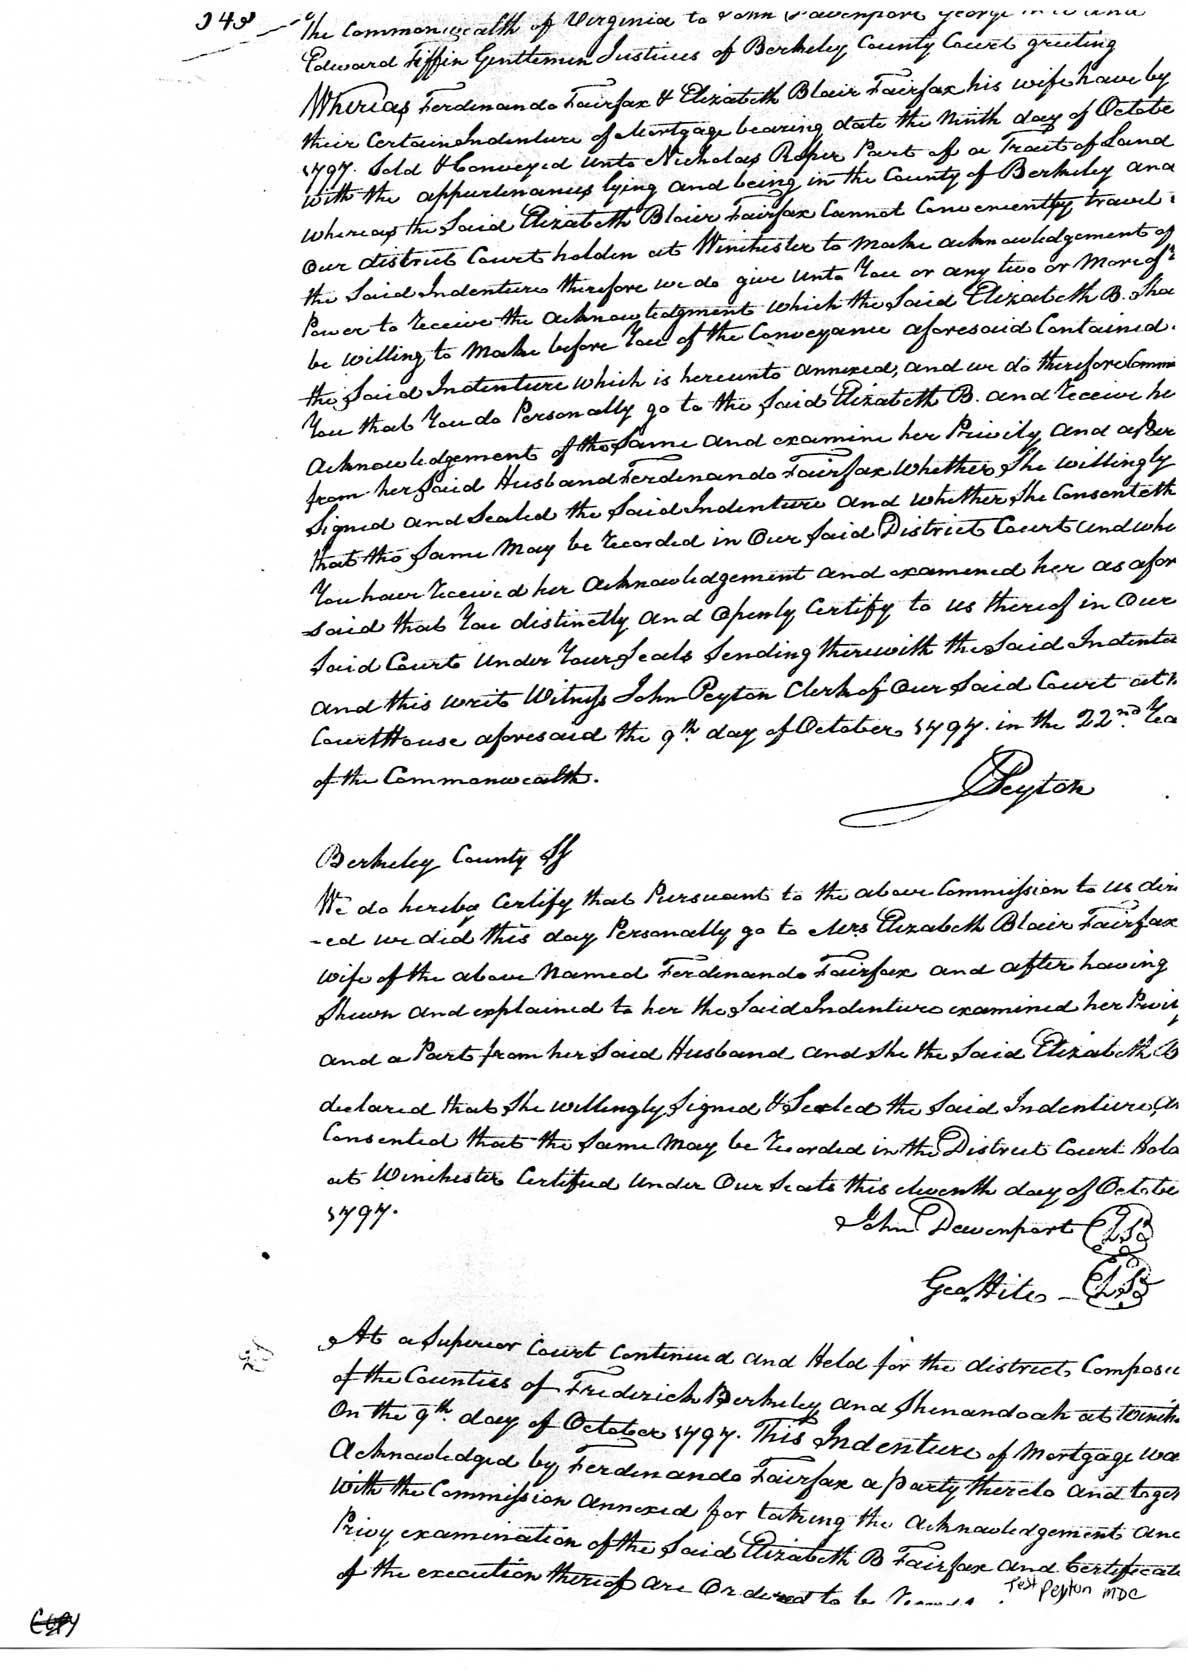 348
The Commonwealth of Virginia to John Davenport George Hite and
Edward Tiffin Gentlemen Justices of Berkeley County Court greeting
Whereas Ferdinando Fairfax & Elizabeth Blair Fairfax his wife have by
their Certain Indenture of Mortgage bearing date the Ninth day of Octobe
1797. Sold & Conveyed unto Nicholas Roper Part of a Tract of Land
with the appurtenances lying and being in the County of Berkeley and
whereas the Said Elizabeth Blair Fairfax Cannot Conveniently travel
Our district Court holden at Winchester to Make acknowledgement of
the Said Indenture therefore we do give unto You or any two or More of
Power to receive the acknowledgment which the Said Elizabeth B. Sha
be willing to Make before You of the Conveyance aforesaid Contained
the Said Indenture which is hereunto annexed, and we do therefore Comm
You that You do Personally go to the Said Elizabeth B. and receive he
acknowledgement of the Same and examine her Privily and apar
from her Said Husband Ferdinando Fairfax whether She willingly
Signed and Sealed the Said Indenture and whether She Consenteth
that the Same May be recorded in Our Said District Court and whe
You have received her acknowledgement and examened her as afor
said that You distinctly and Openly Certify to us thereof in Our
Said Court under Your Seals Sending therewith the Said Indentu
and this writ Witness John Peyton Clerk of Our Said Court at
Court House aforesaid the 9th day of October 1797. in the 22nd Yea
of the Commonwealth.
J Peyton
Berkeley County Ss
We do hereby Certify that Pursuant to the above Commission to us dire
-ed we did this day Personally go to Mrs Elizabeth Blair Fairfax
wife of the above Named Ferdinando Fairfax and after having
Shewn and explained to her the Said Indenture examined her Privi
and a Part from her Said Husband and She the Said Elizabeth B
declared that She willingly Signed & Sealed the Said Indenture, an
Consented that the Same May be recorded in the District Court Hold
at Winchester Certified under Our Seals this eleventh day of Octobe
1797.
John Davenport LS
Geo. Hite LS
At a Superior Court Continued and Held for the district, Compose
of the Counties of Frederick Berkeley and Shenandoah at Winch
On the 9th day of October 1797. This Indenture of Mortgage wa
Acknowledged by Ferdinando Fairfax a party thereto and toget
with the Commission annexed for taking the acknowledgement and
Privy examination of the Said Elizabeth B Fairfax and Certificate
of the execution thereof are Ordered to be
Test Peyton MDC
Copy